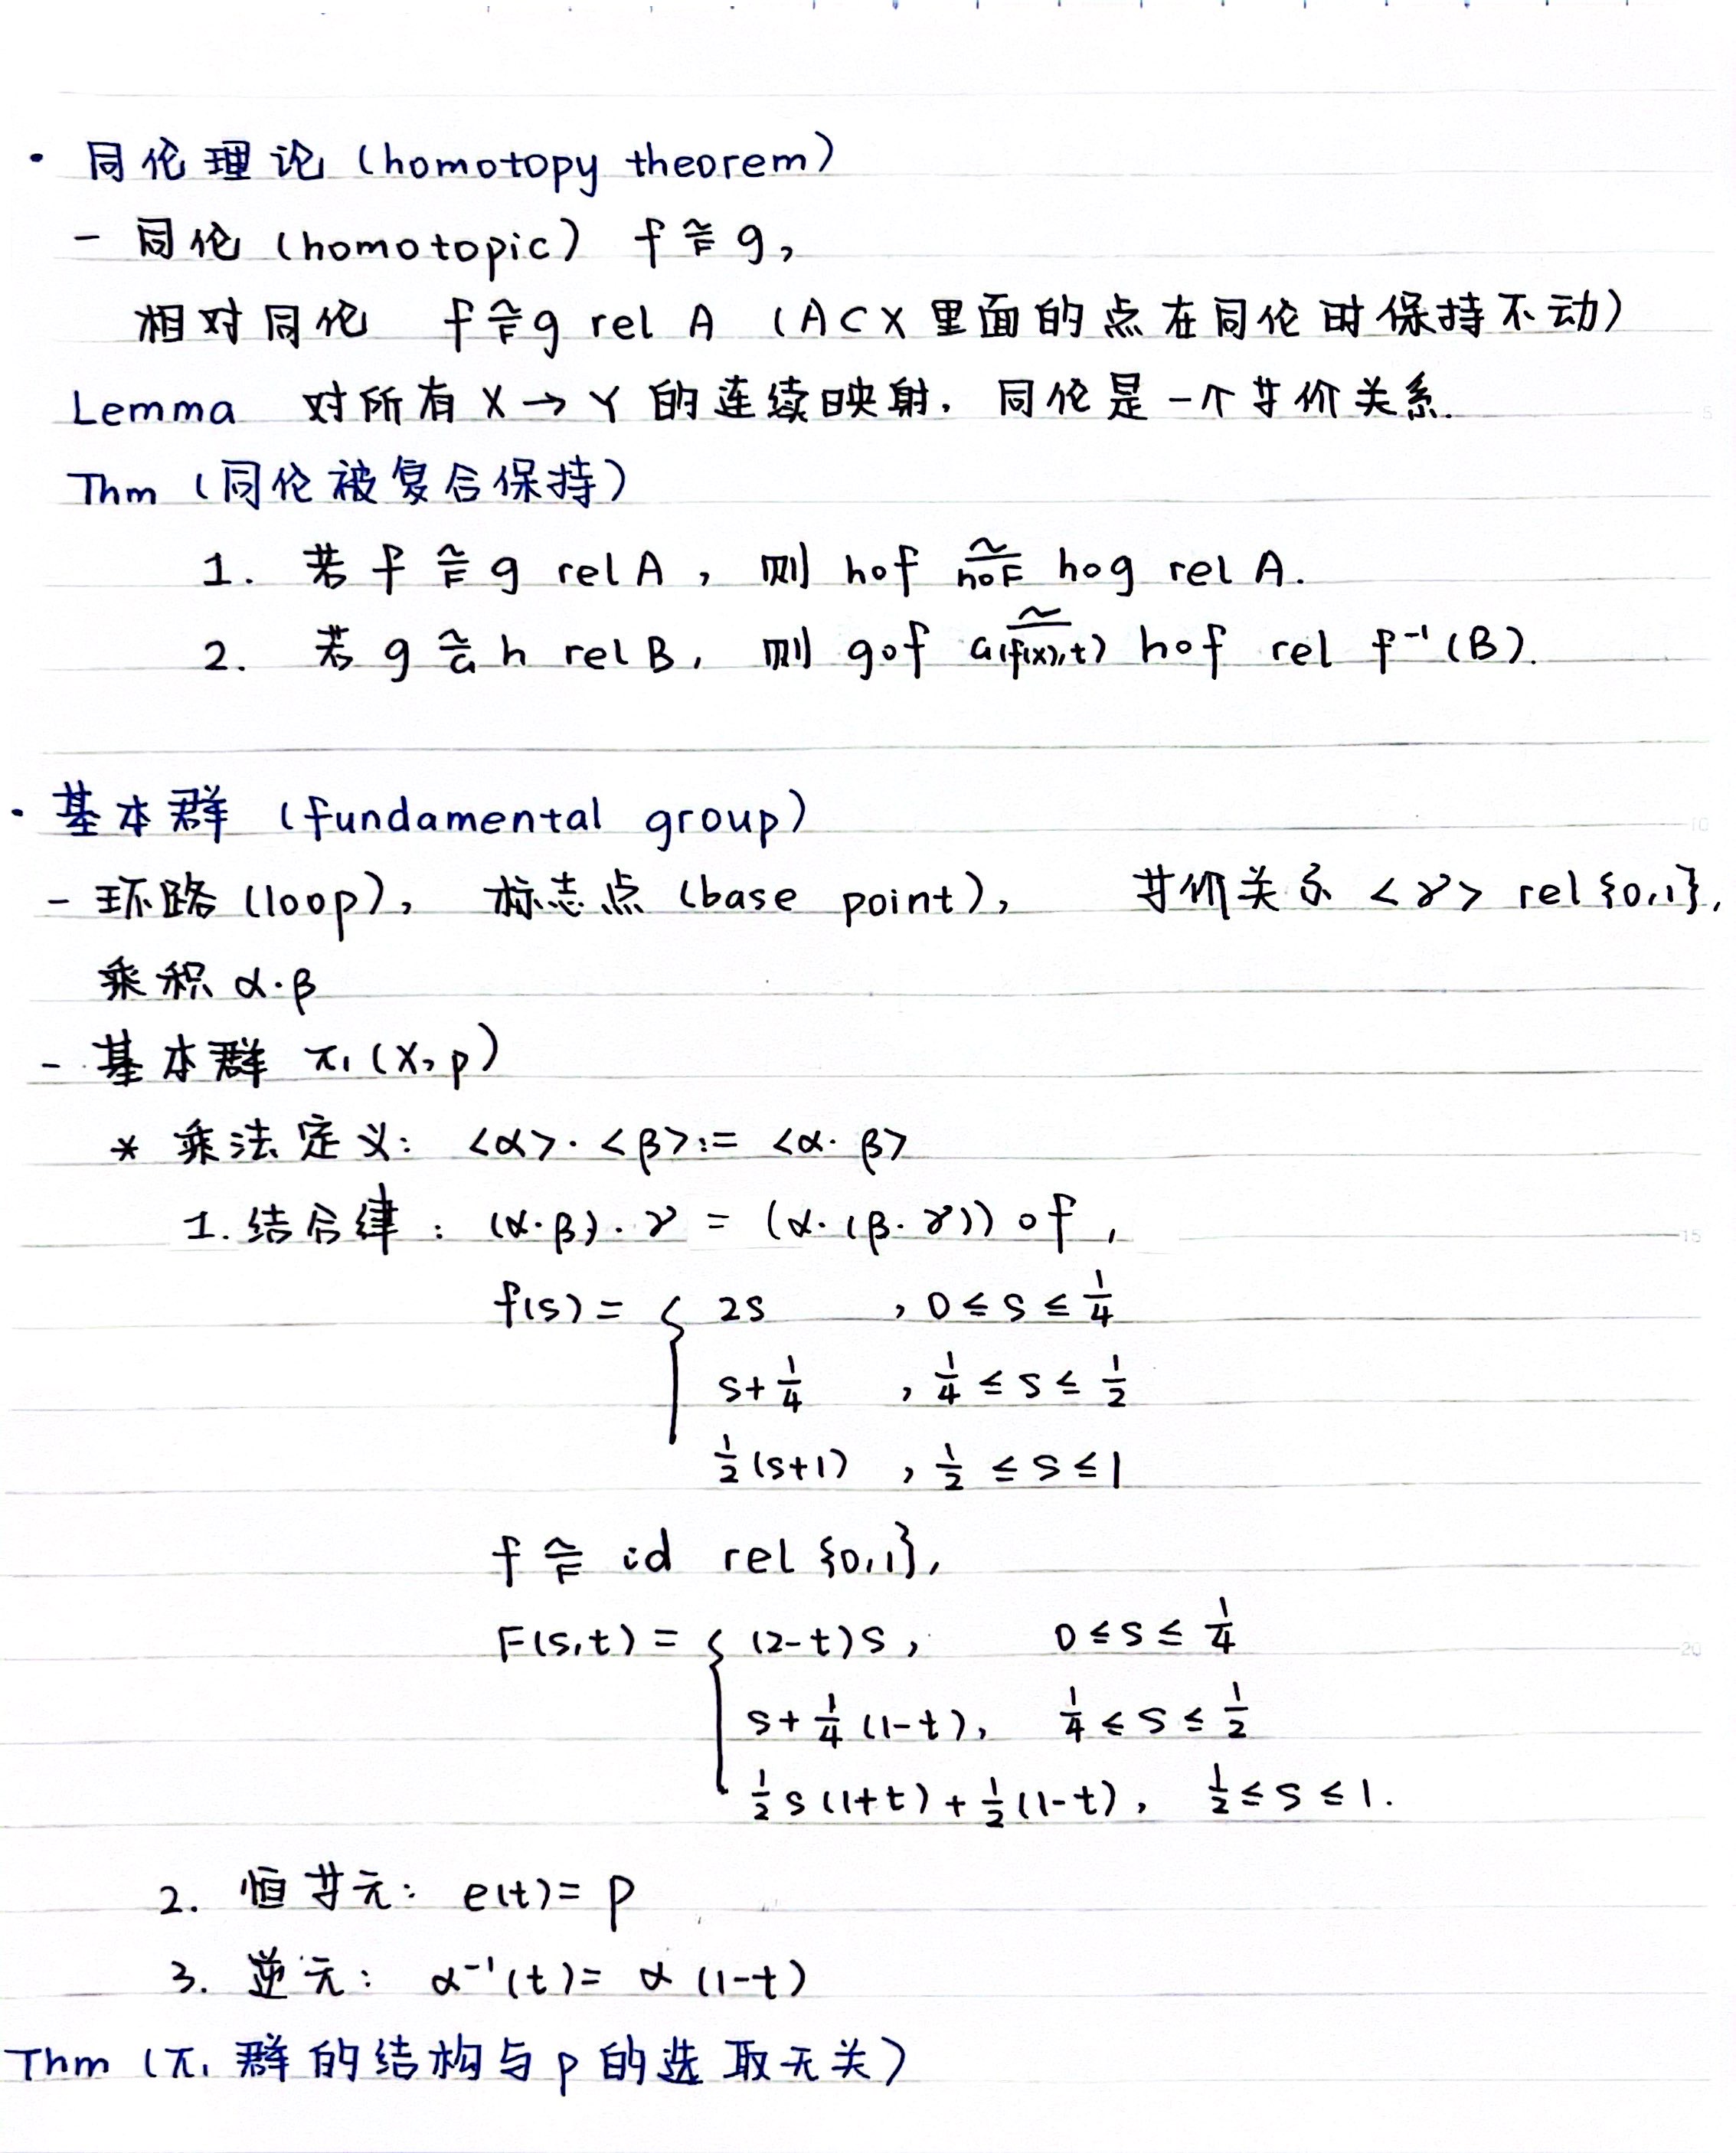 · 同伦理论 (homotopy theorem)
- 同伦 (homotopic) f ≃_F g,
相对同伦 f ≃_F g rel A (A⊂X 里面的点在同伦时保持不动)
Lemma 对所有 X→Y 的连续映射, 同伦是一个等价关系.
Thm (同伦被复合保持)
1. 若 f ≃_F g rel A, 则 h∘f ≃_{h∘F} h∘g rel A.
2. 若 g ≃_G h rel B, 则 g∘f ≃_{G(f(x),t)} h∘f rel f⁻¹(B).
· 基本群 (fundamental group)
- 环路 (loop), 标志点 (base point), 等价关系 <γ> rel {0,1},
乘积 α·β
- 基本群 π₁(X, p)
* 乘法定义: <α>·<β> := <α·β>
1. 结合律: (α·β)·γ = (α·(β·γ))∘f,
f(s) = { 2s , 0 ≤ s ≤ 1/4
s+1/4 , 1/4 ≤ s ≤ 1/2
1/2(s+1) , 1/2 ≤ s ≤ 1
f ≃_F id rel {0,1},
F(s,t) = { (2-t)s, 0 ≤ s ≤ 1/4
s+1/4(1-t), 1/4 ≤ s ≤ 1/2
1/2 s(1+t)+1/2(1-t), 1/2 ≤ s ≤ 1.
2. 恒等元: e(t) = p
3. 逆元: α⁻¹(t) = α(1-t)
Thm (π₁ 群的结构与 p 的选取无关)
5
10
15
20